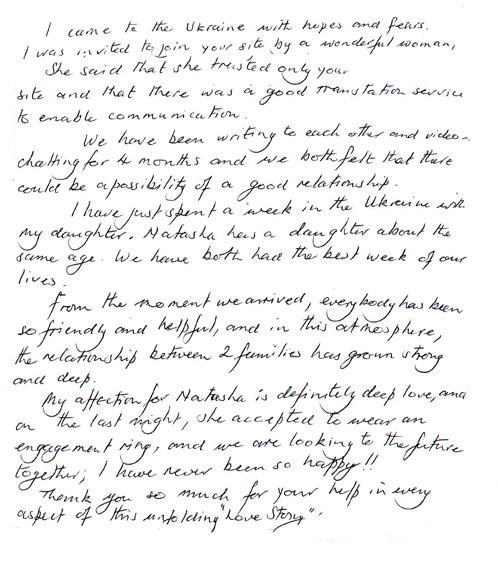 I came to the Ukraine with hopes and fears.
I was invited to join your site by a wonderful woman,
She said that she trusted only your
site and that there was a good translation service
to enable communication.
We have been writing to each other and video-
chatting for 4 months and we both felt that there
could be a possibility of a good relationship.
I have just spent a week in the Ukraine with
my daughter. Natasha has a daughter about the
same age. We have both had the best week of our
lives.
From the moment we arrived, everybody has been
so friendly and helpful, and in this atmosphere,
the relationship between 2 families has grown strong
and deep.
My affection for Natasha is definitely deep love, and
on the last night, she accepted to wear an
engagement ring, and we are looking to the future
together; I have never been so happy!!
Thank you so much for your help in every
aspect of this unfolding "Love Story".